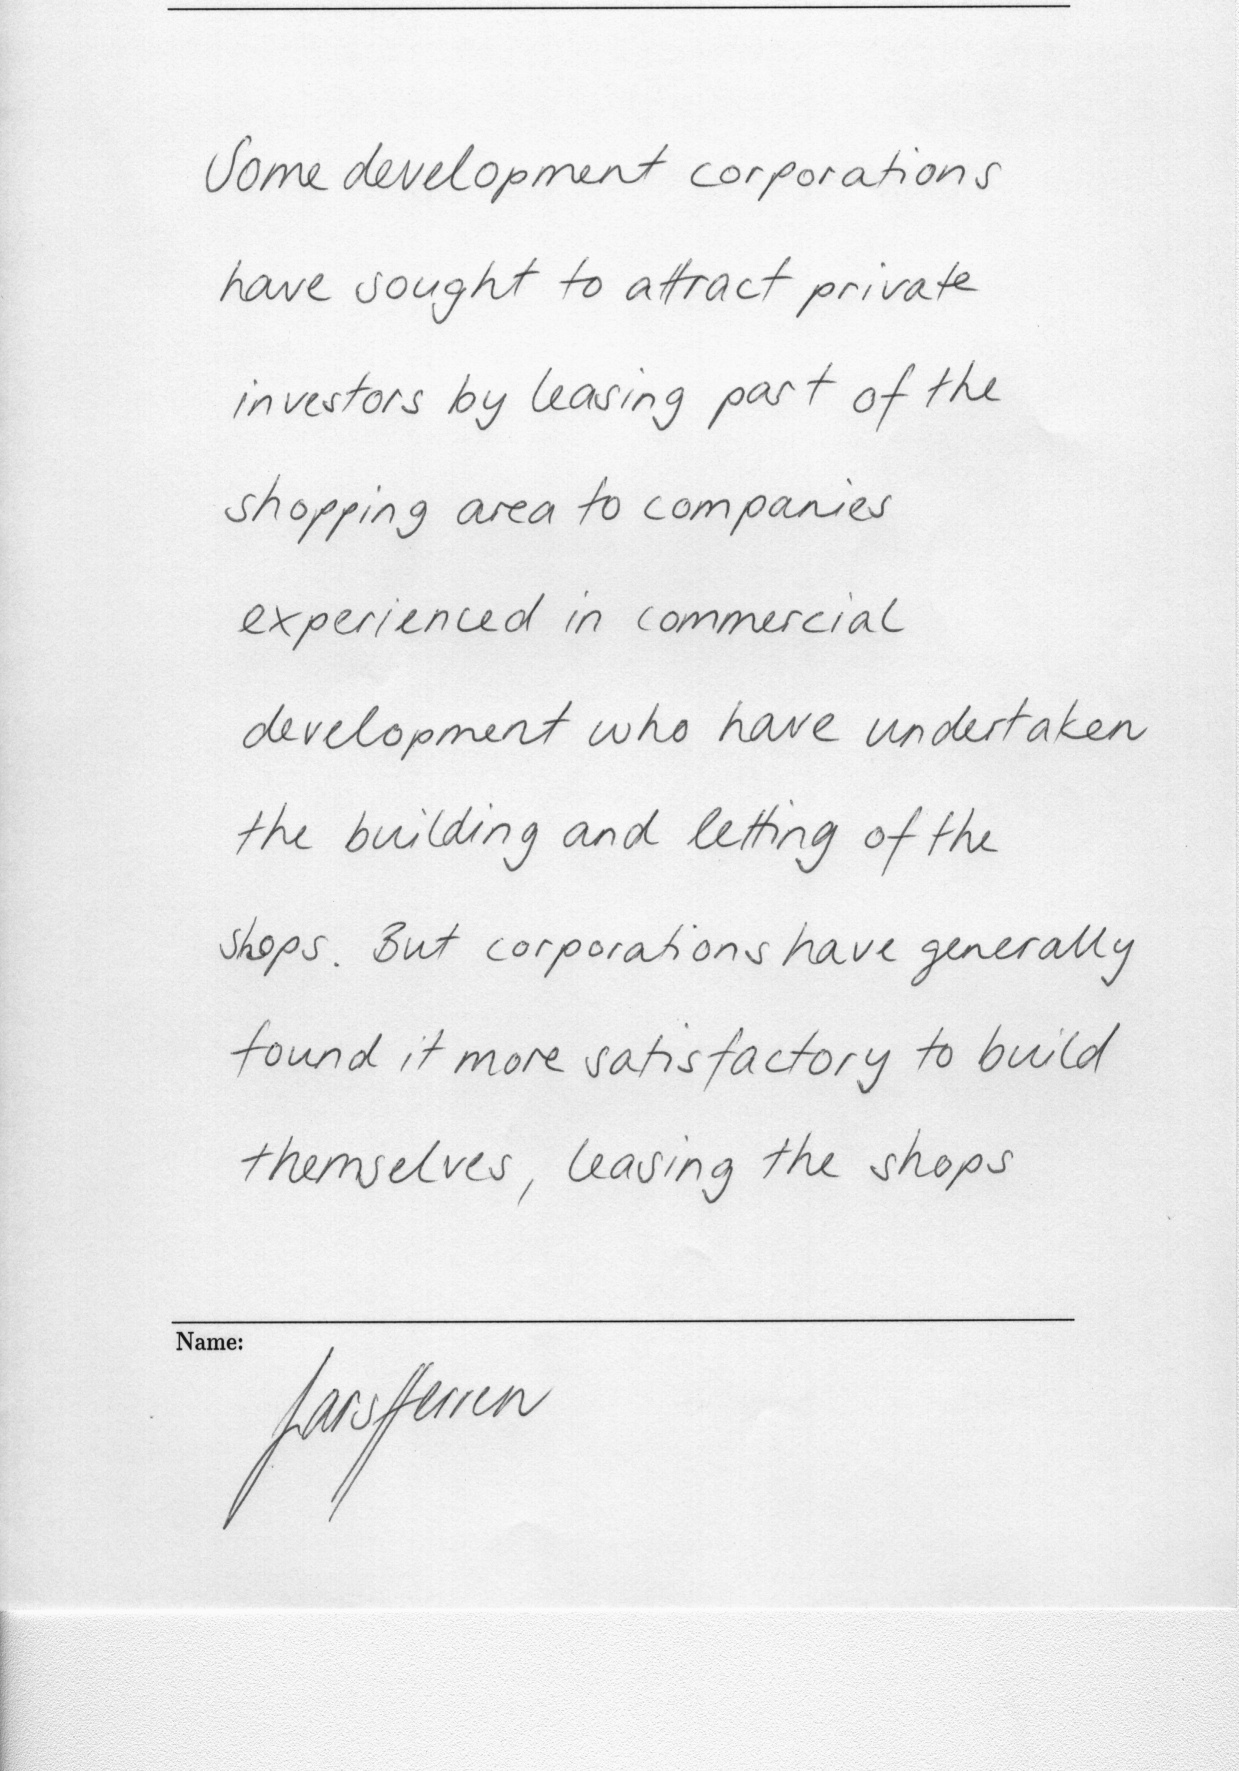 Some development corporations
have sought to attract private
investors by leasing part of the
shopping area to companies
experienced in commercial
development who have undertaken
the building and letting of the
shops. But corporations have generally
found it more satisfactory to build
themselves, leasing the shops
Name: